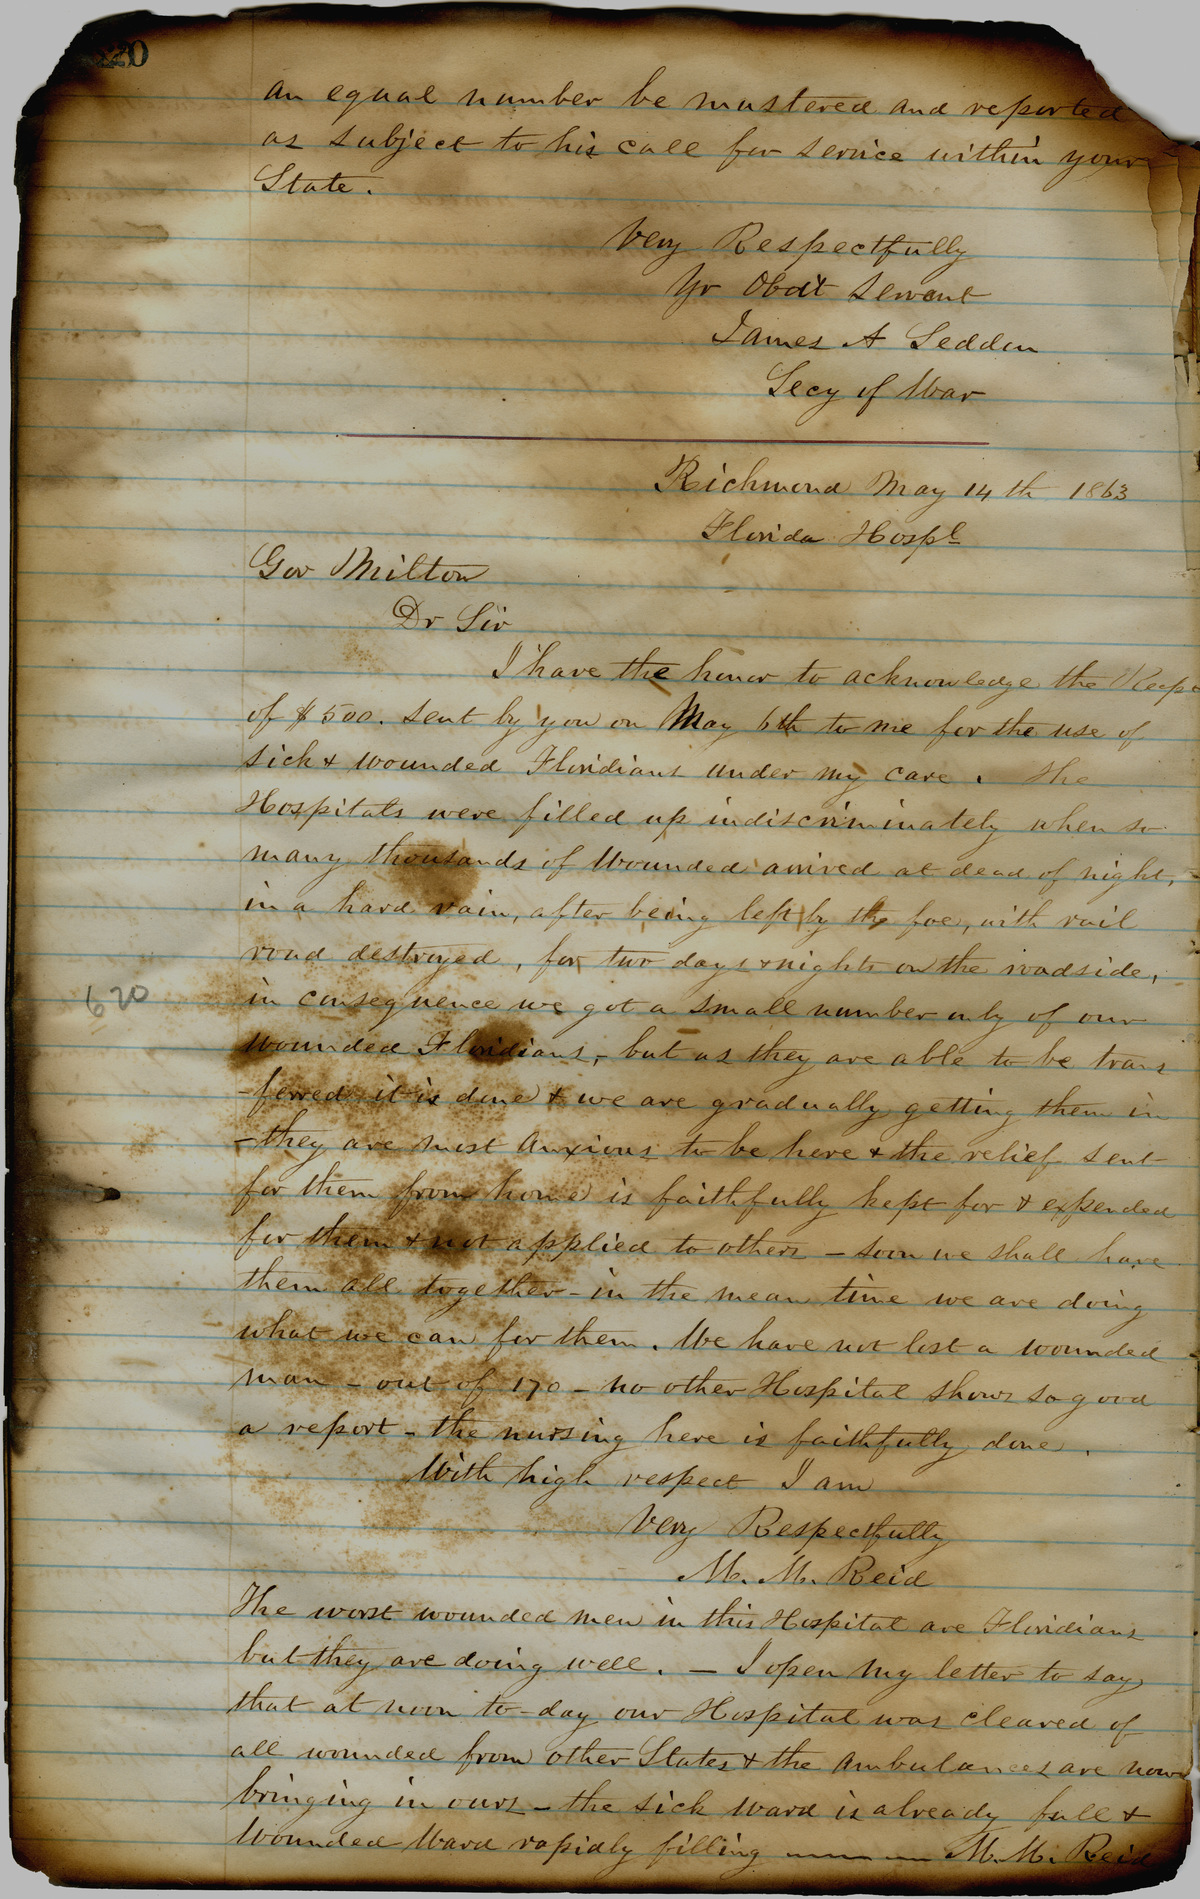 220
an equal number be mustered and reported
as subject to his call for service within your
State.
Very Respectfully
Yr Obdt Servant
James A Seddon
Secy of War
Richmond May 14th 1863
Florida Hospl
Gov Milton
Dr Sir
I have the honor to acknowledge the Recpt
of $500. sent by you on May 6th to me for the use of
sick & wounded Floridians under my care. The
Hospitals were filled up indiscriminately when so
many thousands of Wounded arrived at dead of night,
in a hard rain, after being left by the foe, with rail
road destroyed, for two days & nights on the roadside,
in consequence we got a small number only of our
wounded Floridians, but as they are able to be trans
-ferred it is done & we are gradually getting them in
- they are most anxious to be here & the relief sent
for them from home is faithfully kept for & expended
for them & not applied to others - soon we shall have
them all together - in the mean time we are doing
what we can for them. We have not lost a wounded
man - out of 170 - no other Hospital shows so good
a report - the nursing here is faithfully done.
With high respect I am
Very Respectfully
M. M. Reid
620
The worst wounded men in this Hospital are Floridians
but they are doing well. - I open my letter to say
that at noon to-day our Hospital was cleared of
all wounded from other States & the ambulances are now
bringing in ours - the sick ward is already full &
Wounded Ward rapidly filling —— M. M. Reid